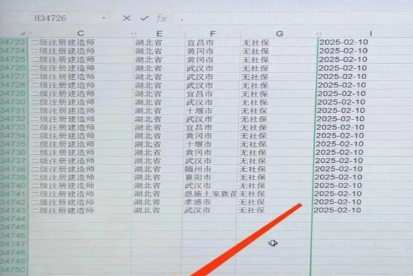 H34726 × ✓ fx .
C E F G I
34723 二级注册建造师 湖北省 宜昌市 无社保 2025-02-10
34724 二级注册建造师 湖北省 黄冈市 无社保 2025-02-10
34725 二级注册建造师 湖北省 黄冈市 无社保 2025-02-10
34726 二级注册建造师 湖北省 武汉市 无社保 2025-02-10
34727 二级注册建造师 湖北省 武汉市 无社保 2025-02-10
34728 二级注册建造师 湖北省 武汉市 无社保 2025-02-10
34729 二级注册建造师 湖北省 宜昌市 无社保 2025-02-10
34730 二级注册建造师 湖北省 武汉市 无社保 2025-02-10
34731 二级注册建造师 湖北省 十堰市 无社保 2025-02-10
34732 二级注册建造师 湖北省 武汉市 无社保 2025-02-10
34733 二级注册建造师 湖北省 宜昌市 无社保 2025-02-10
34734 二级注册建造师 湖北省 黄冈市 无社保 2025-02-10
34735 二级注册建造师 湖北省 十堰市 无社保 2025-02-10
34736 二级注册建造师 湖北省 黄冈市 无社保 2025-02-10
34737 二级注册建造师 湖北省 武汉市 无社保 2025-02-10
34738 二级注册建造师 湖北省 随州市 无社保 2025-02-10
34739 二级注册建造师 湖北省 襄阳市 无社保 2025-02-10
34740 二级注册建造师 湖北省 武汉市 无社保 2025-02-10
34741 二级注册建造师 湖北省 恩施土家族苗 无社保 2025-02-10
34742 二级注册建造师 湖北省 孝感市 无社保 2025-02-10
34743 二级注册建造师 湖北省 武汉市 无社保 2025-02-10
34744
34745
34746
34747
34748
34749
34750